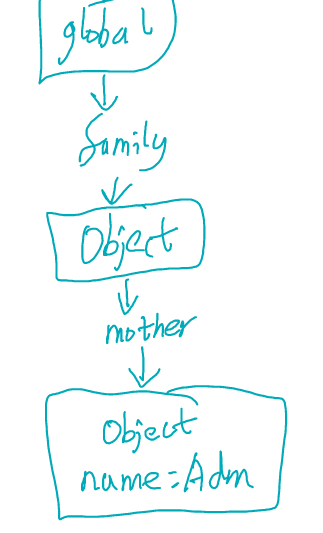 global
family
Object
mother
Object
name=Adm